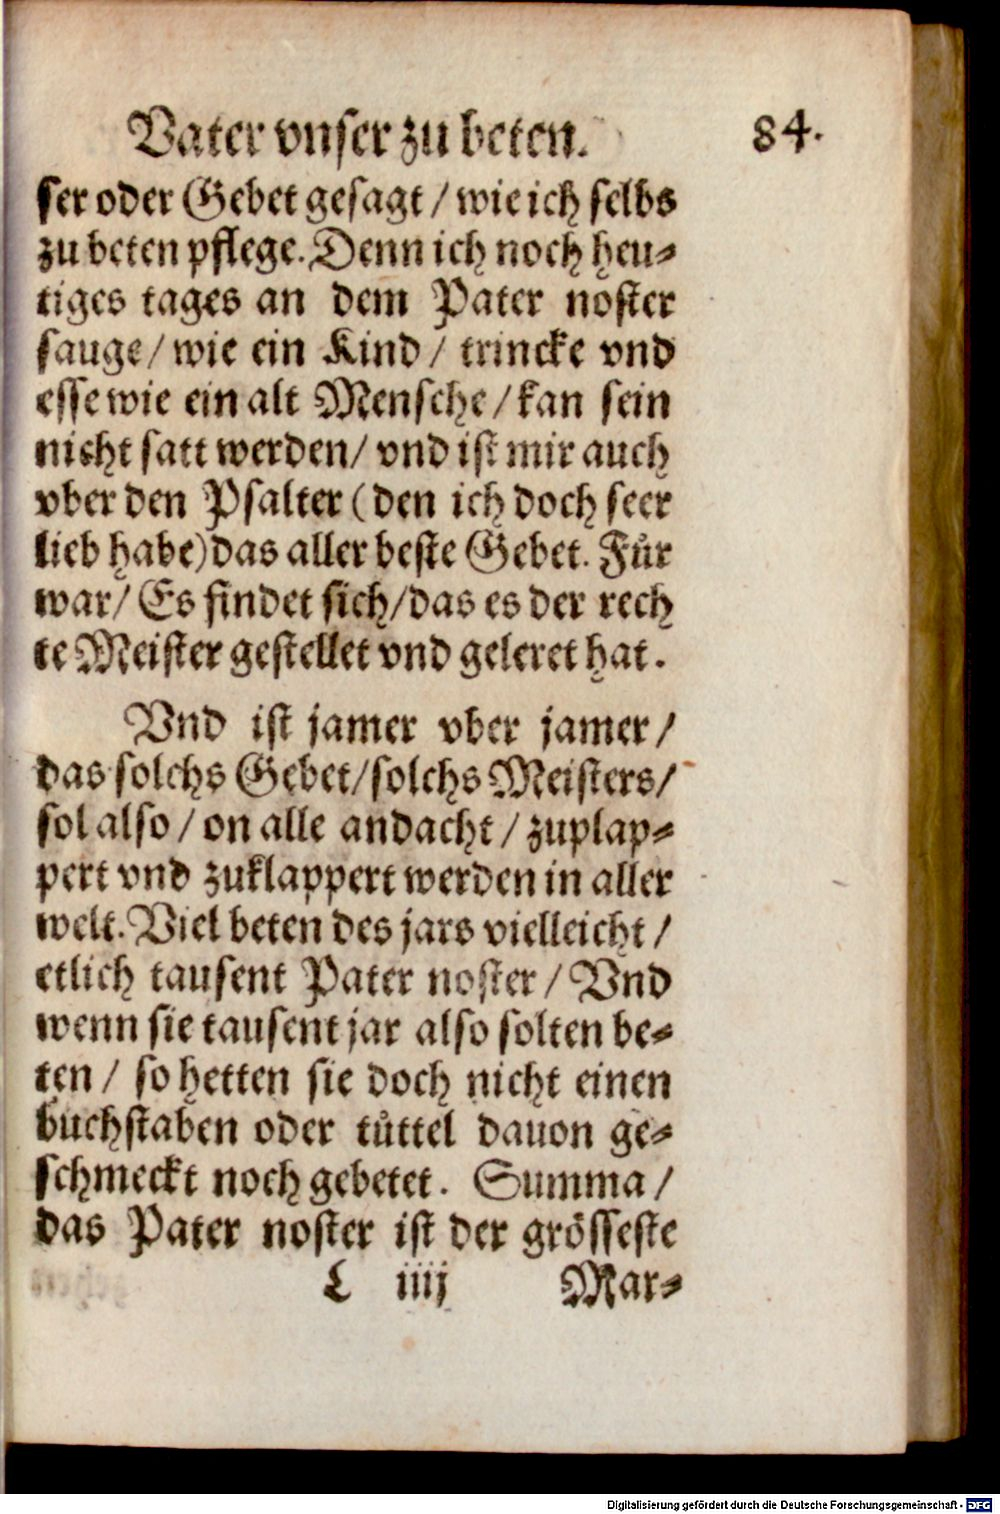 Vater vnser zu beten. 84.
ser oder Gebet gesagt / wie ich selbs
zu beten pflege. Denn ich noch heu⸗
tiges tages an dem Pater noster
sauge / wie ein Kind / trincke vnd
esse wie ein alt Mensche / kan sein
nicht satt werden / vnd ist mir auch
vber den Psalter (den ich doch seer
lieb habe) das aller beste Gebet. Fuͤr
war / Es findet sich / das es der rech
te Meister gestellet vnd geleret hat.
Vnd ist jamer vber jamer /
das solchs Gebet / solchs Meisters /
sol also / on alle andacht / zuplap⸗
pert vnd zuklappert werden in aller
welt. Viel beten des jars vielleicht /
etlich tausent Pater noster / Vnd
wenn sie tausent jar also solten be⸗
ten / so hetten sie doch nicht einen
buchstaben oder tuͤttel dauon ge⸗
schmeckt noch gebetet. Summa /
das Pater noster ist der grösseste
L iiij Mar⸗
Digitalisierung gefördert durch die Deutsche Forschungsgemeinschaft - DFG